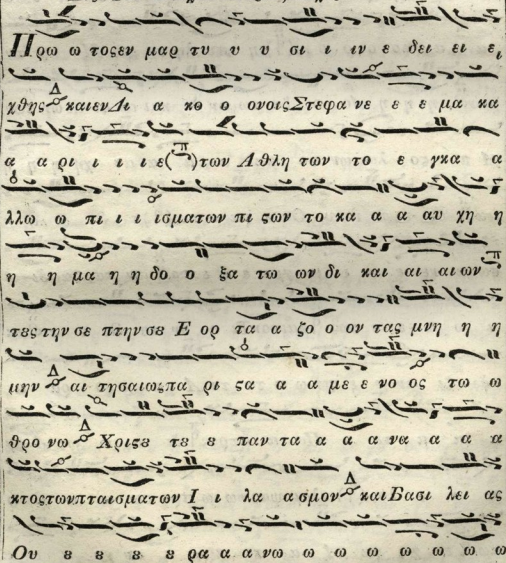 Πρω ω τοςεν μαρ τυ υ υ σι ι ιν ε δει ει ει
χθης Δ καιενΔι α κȣ ο ονοιςΣτεφα νε ε ε μα κα
α α ρι ι ι ι ε(π)των Α θλη των το ε γκα α
λλω ω πι ι ι ισματων πι ϛων το κα α α αυ χη η
η η μα η η δο ο ξα τω ων δι και αι αι ων π
τες την σε πτην σȣ Ε ορ τα α ζο ο ον τας μνη η η
μην Δ αι τησαιωςπα ρι ϛα α α με ε νο ος τω ω
θρο νω Δ Χριϛȣ τȣ ȣ παν τα α α α να α α α
κτοςτωνπταισματων Ι ι λα α σμον Δ καιΒασι λει ας
Ου ȣ ȣ ȣ ȣ ρα α α νω ω ω ω ω ω ω ω